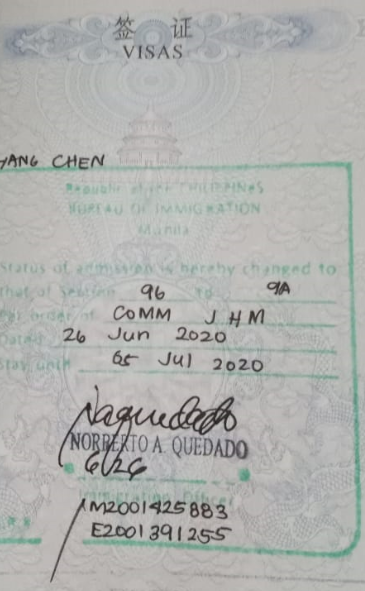 签 证
VISAS
YANG CHEN
Republic of the PHILIPPINES
BUREAU OF IMMIGRATION
Manila
Status of admission is hereby changed to
that of Section 9G to 9A
per order of COMM J H M
Dated 26 Jun 2020
Stay until 05 Jul 2020
NORBERTO A. QUEDADO
6/26
Immigration Officer
M2001425883
E2001391255